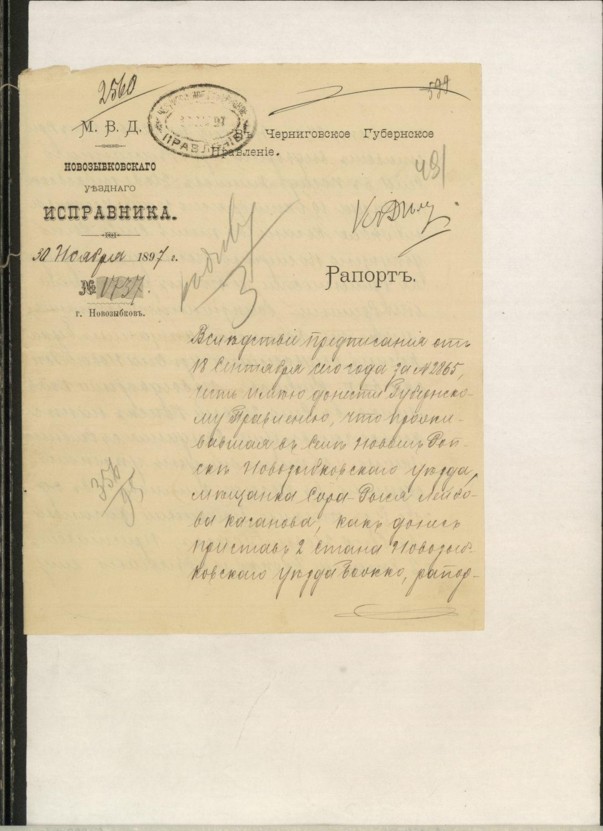 2560
594
М. В. Д.
НОВОЗЫБКОВСКАГО
УѢЗДНАГО
ИСПРАВНИКА.
30 Ноября 1897 г.
№ 1737.
г. Новозыбковъ.
ПРАВЛЕНІЕ
Въ Черниговское Губернское
Правленіе.
491
Рапортъ.
Вслѣдствіе предписанія отъ
18 Сентября сего года за № 2865,
честь имѣю донести Губернско-
му Правленію, что прожи-
вавшая въ селѣ Новомъ Роп-
скѣ Новозыбковскаго уѣзда,
мѣщанка Сора-Рися Лейбо-
ва Казанова, какъ донесъ
приставъ 2 стана Новозыб-
ковскаго уѣзда, рапор-